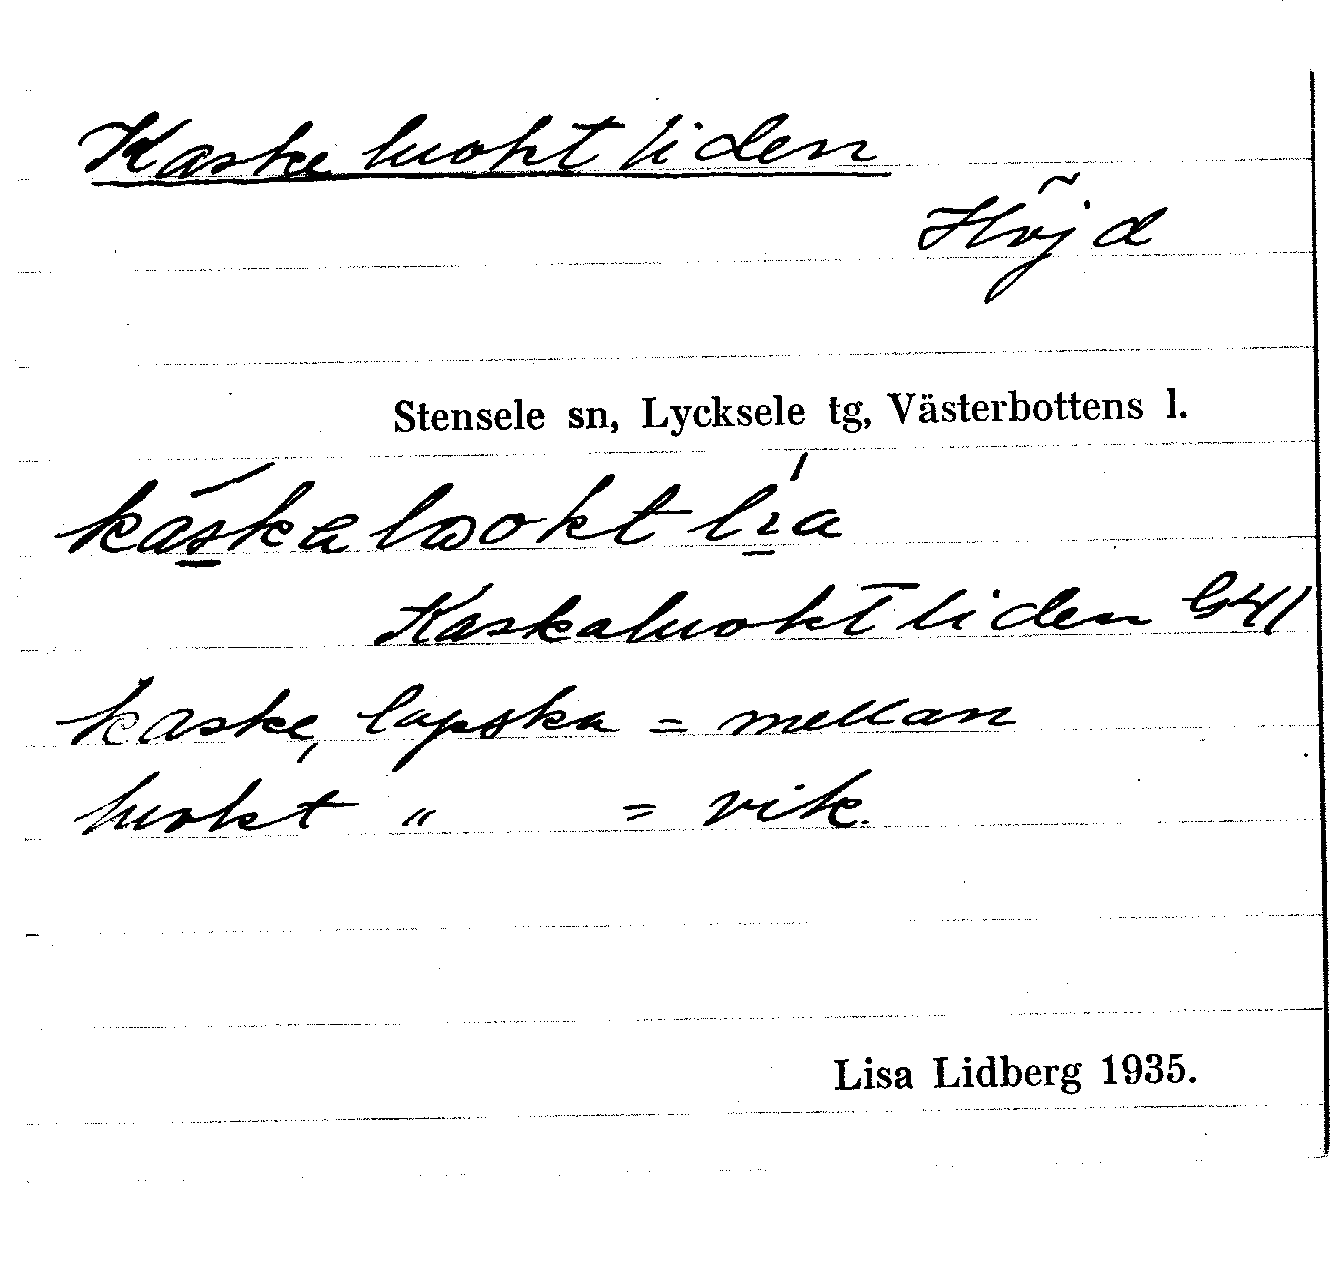 Kaskeluoktliden
Höjd
Stensele sn, Lycksele tg, Västerbottens l.
Kaskaluoktliden G41
kaske, lapska = mellan
luokt " = vik.
Lisa Lidberg 1935.